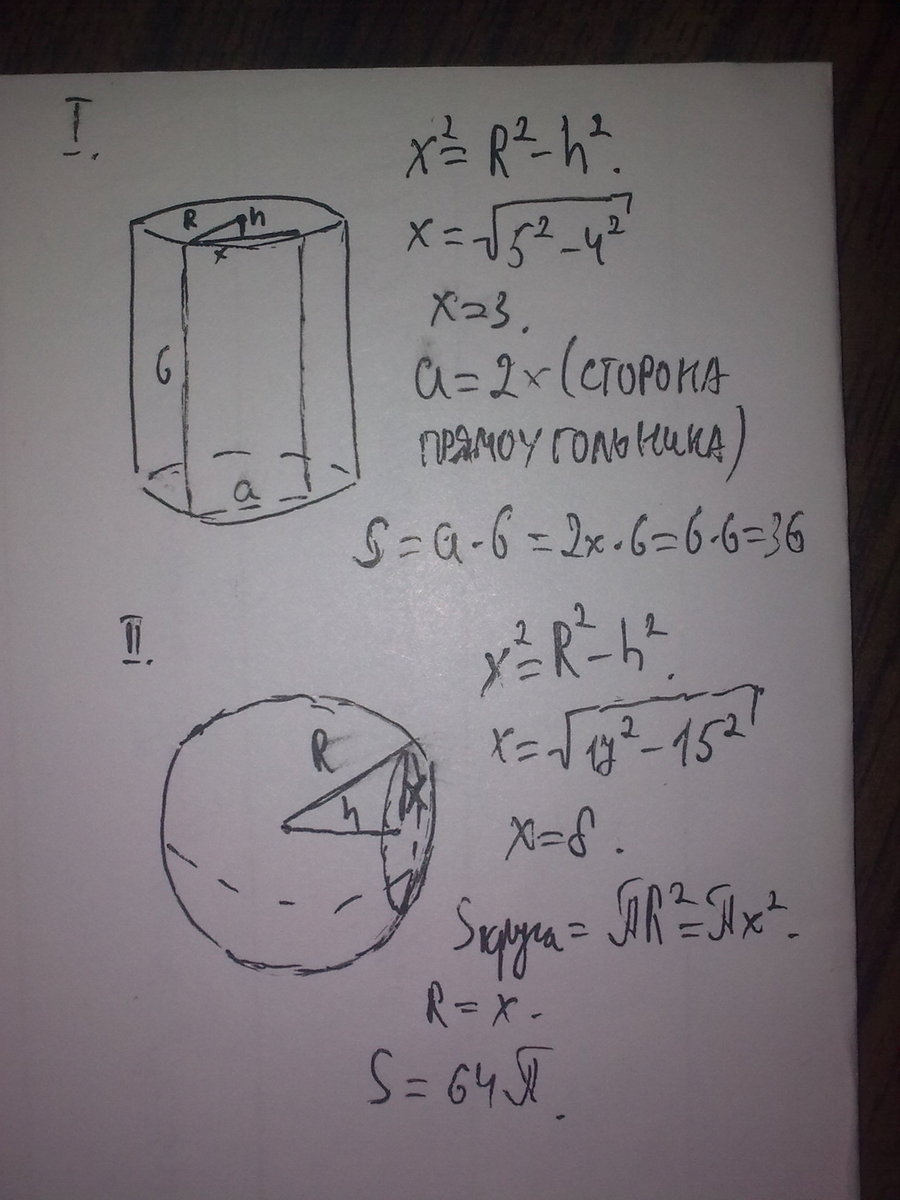 I.
x² = R² - h².
x = √5² - 4²
x = 3.
a = 2x (СТОРОНА
ПРЯМОУГОЛЬНИКА)
S = a · 6 = 2x · 6 = 6 · 6 = 36
R
h
x
6
a
II.
x² = R² - h².
x = √17² - 15²
x = 8.
Sкруга = πR² = πx².
R = x.
S = 64π.
R
h
x